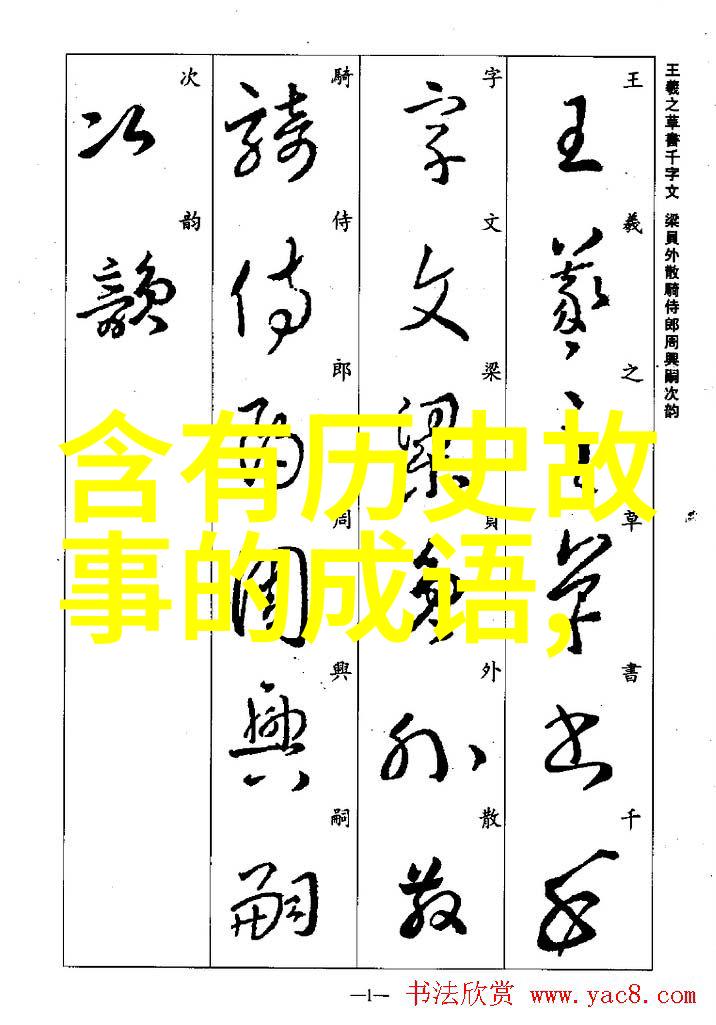 王羲之草書千字文 梁員外散騎侍郎周興嗣次韵
王羲之草書千
字文梁員外散
騎侍郎周興嗣
次韵
含有历史故
事的成语,
—1—
书法欣赏 www.yac8.com